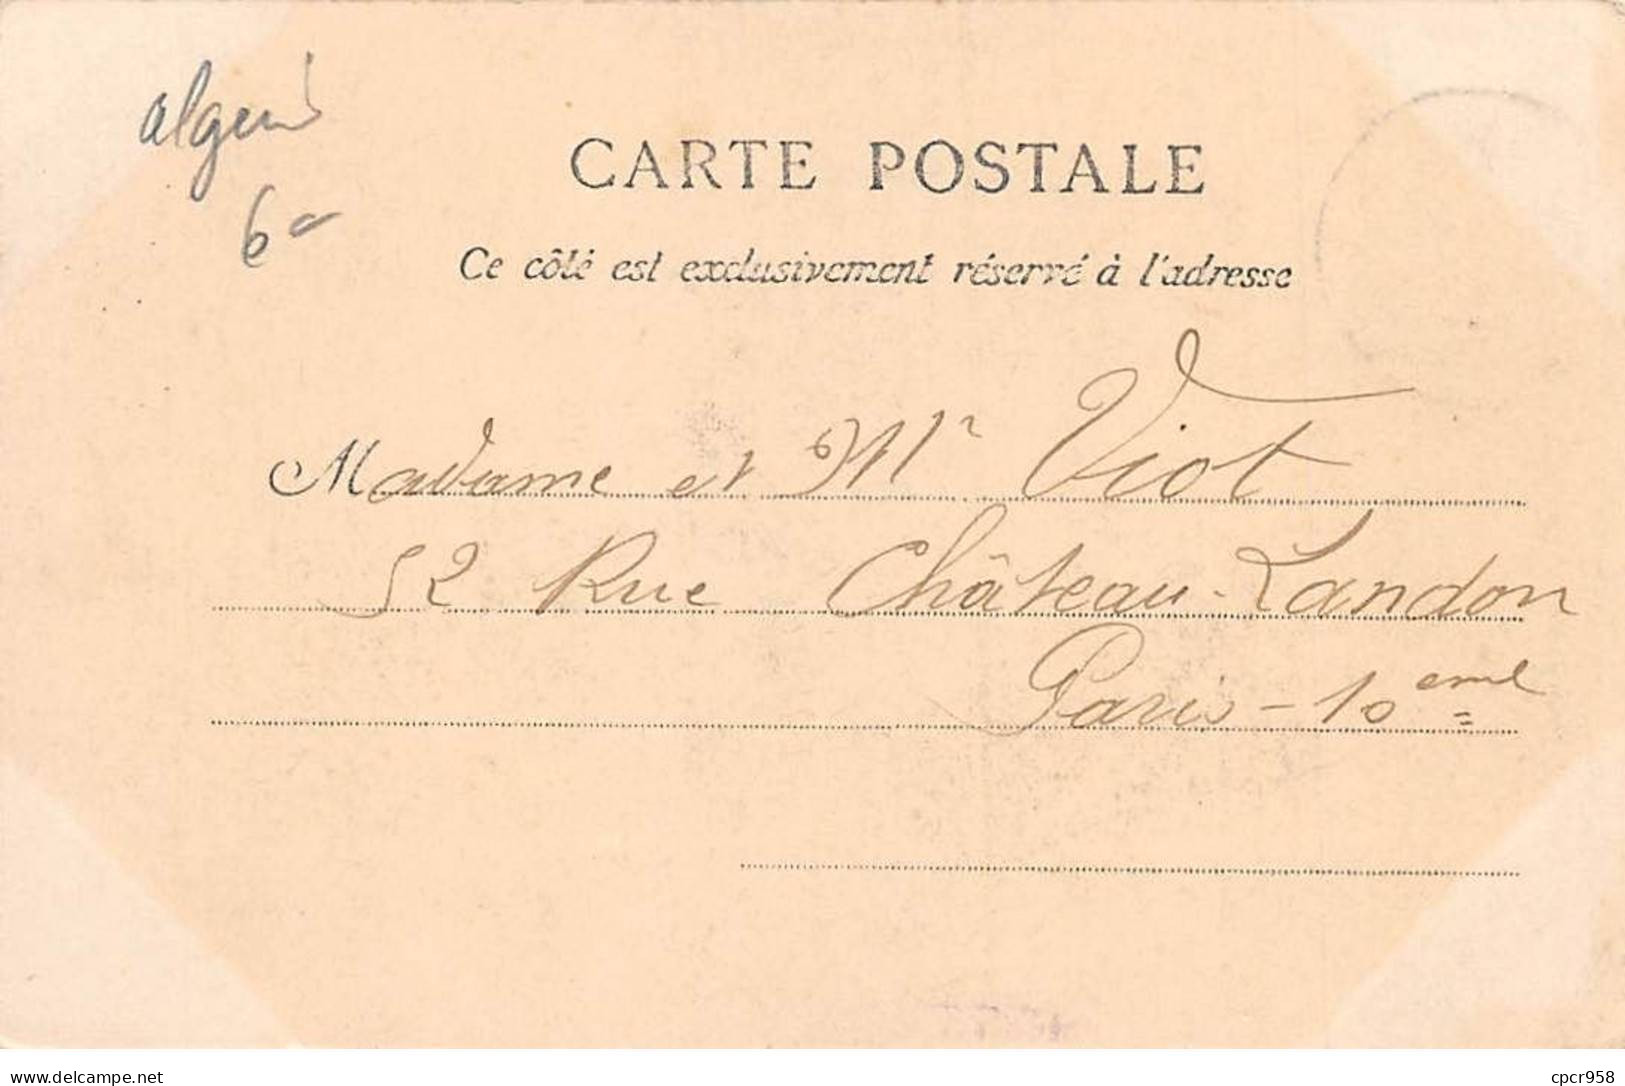 CARTE POSTALE
6
Ce côté est exclusivement réservé à l'adresse
Madame et Mr Viot
52 Rue Château-Landon
Paris - 10eme
www.delcampe.net
cpcr958